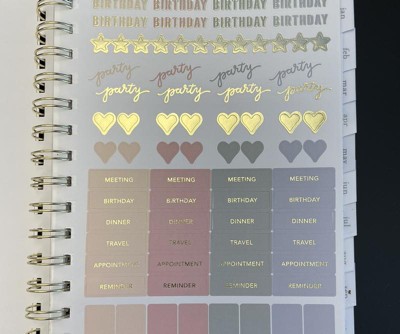 BIRTHDAY BIRTHDAY BIRTHDAY BIRTHDAY
BIRTHDAY BIRTHDAY BIRTHDAY BIRTHDAY
party party party party
party party party party
MEETING MEETING MEETING MEETING
BIRTHDAY BIRTHDAY BIRTHDAY BIRTHDAY
DINNER DINNER DINNER DINNER
TRAVEL TRAVEL TRAVEL TRAVEL
APPOINTMENT APPOINTMENT APPOINTMENT APPOINTMENT
REMINDER REMINDER REMINDER REMINDER
jan
feb
mar
apr
may
jun
jul